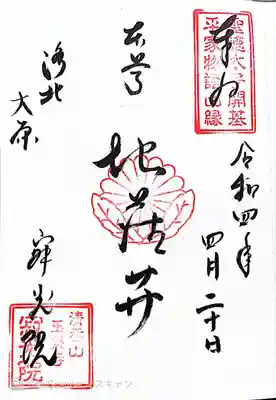 聖徳太子開基
平家物語由縁
奉拝
令和四年
四月二十日
本尊
地蔵𦬇
洛北
大原
寂光院
清香山
玉泉寺
寂光院
スキャン